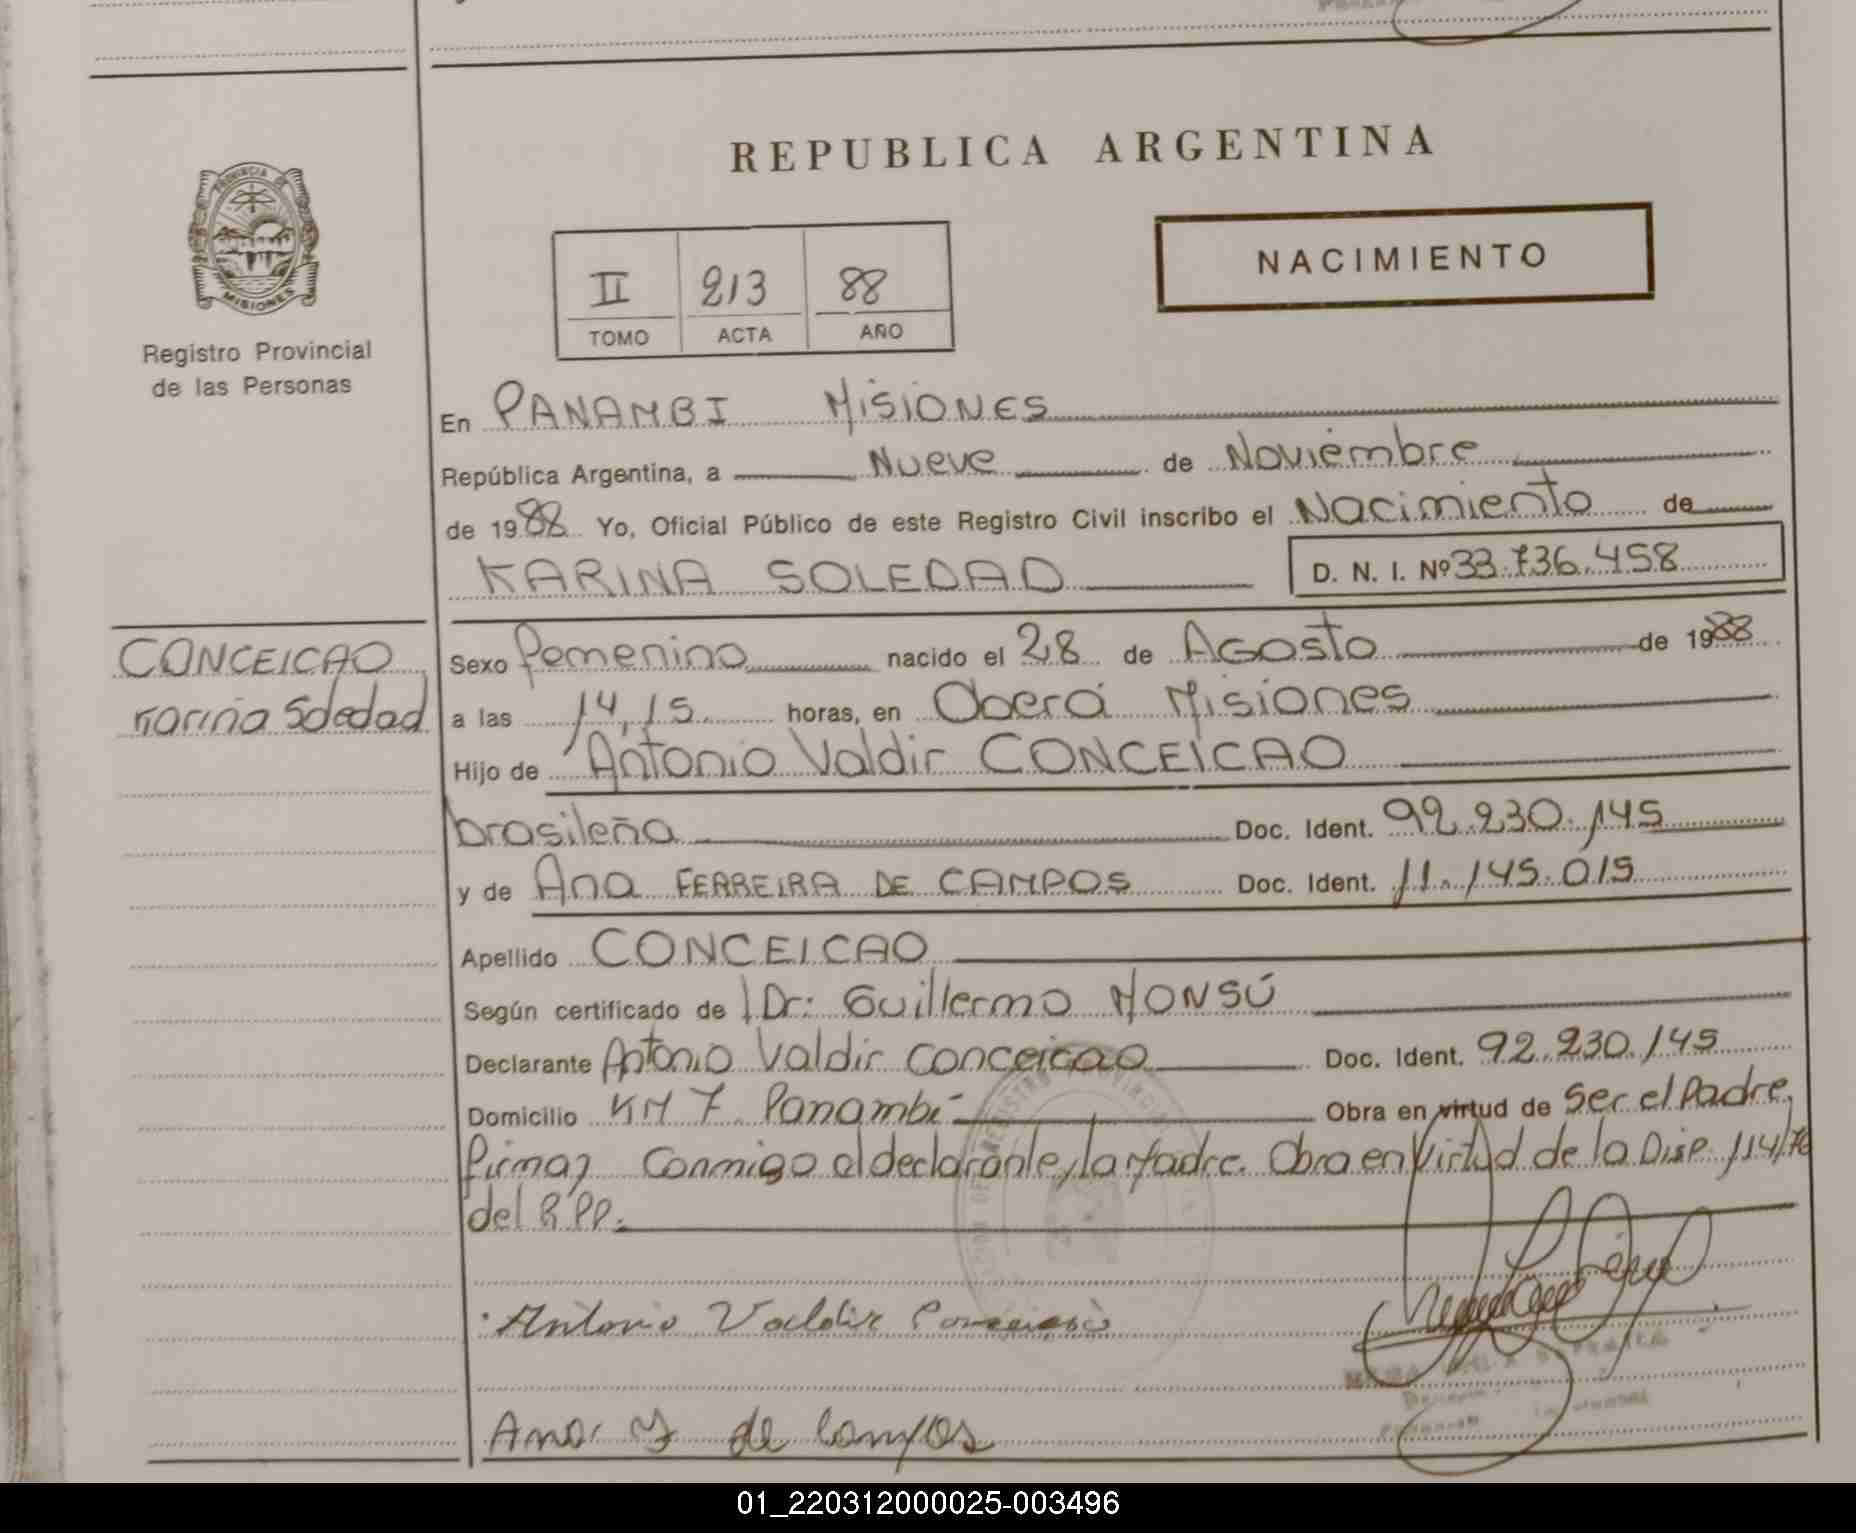 REPUBLICA ARGENTINA
PROVINCIA DE
MISIONES
Registro Provincial
de las Personas
II 213 88
TOMO ACTA AÑO
NACIMIENTO
En PANAMBI MISIONES
República Argentina, a Nueve de Noviembre
de 1988 Yo, Oficial Público de este Registro Civil inscribo el Nacimiento de
KARINA SOLEDAD D. N. I. Nº 33.736.458
CONCEICAO
Karina Soledad
Sexo femenino nacido el 28 de Agosto de 1988
a las 14,15 horas, en Oberá Misiones
Hijo de Antonio Valdir CONCEICAO
brasileña Doc. Ident. 92.230.145
y de Ana FERREIRA DE CAMPOS Doc. Ident. 11.145.015
Apellido CONCEICAO
Según certificado de Dr: Guillermo MONSÚ
Declarante Antonio Valdir Conceicao Doc. Ident. 92.230.145
Domicilio KM 7 Panambí Obra en virtud de Ser el Padre,
firman Conmigo el declarante, la Madre. Obra en Virtud de la Disp. 114/76
del R.P.P.
Antonio Valdir Conceicao
Ana F de Campos
01_220312000025-003496